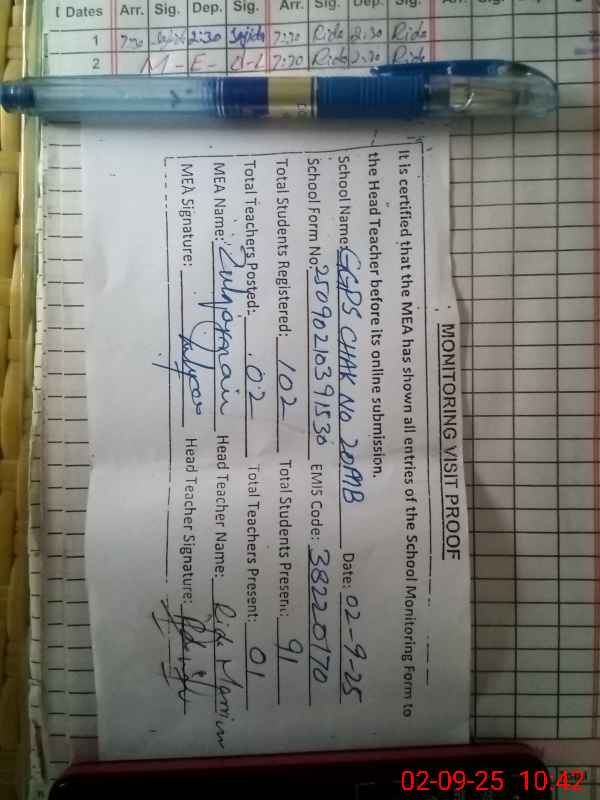 Dates Arr. Sig. Dep. Sig. Arr. Sig. Dep. Sig.
1 7:30 Sajida 2:30 Sajida 7:30 Rida 2:30 Rida
2 M - E - U - L 7:30 Rida 2:30 Rida
MONITORING VISIT PROOF
It is certified that the MEA has shown all entries of the School Monitoring Form to
the Head Teacher before its online submission.
School Name: GGPS CHAK NO 20MB Date: 02-9-25
School Form No: 25090210391530 EMIS Code: 38220170
Total Students Registered: 102 Total Students Present: 91
Total Teachers Posted: 02 Total Teachers Present: 01
MEA Name: Zulqarnain Head Teacher Name: Rida Marriam
MEA Signature: Head Teacher Signature:
02-09-25 10:42